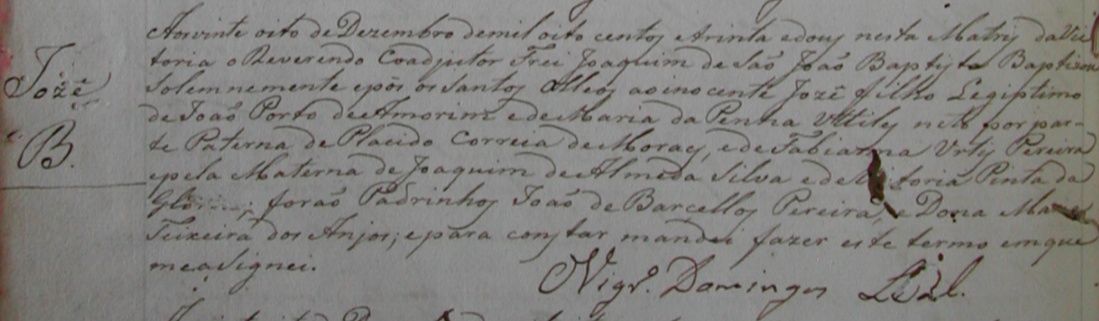 Aos vinte oito de Dezembro de mil oito centos e trinta e dous nesta Matriz da Vic
toria o Reverendo Coadjutor Frei Joaquim de São João Baptysta Baptizou
Solemnemente e pôs os Santos Olleos ao inocente Jozê filho Legiptimo
de João Porto de Amorim e de Maria da Penha neto por par-
te Paterna de Placido Correia de Moraes, e de Fabianna Pereira
e pela Materna de Joaquim de Almeda Silva e de toria Pinta da
forão Padrinhos João de Barcellos Pereira, e Dona
Teixeira dos Anjos; e para constar mandei fazer este termo em que
me asignei.
Jozê
B.
Vigr.º Domingos Leal.